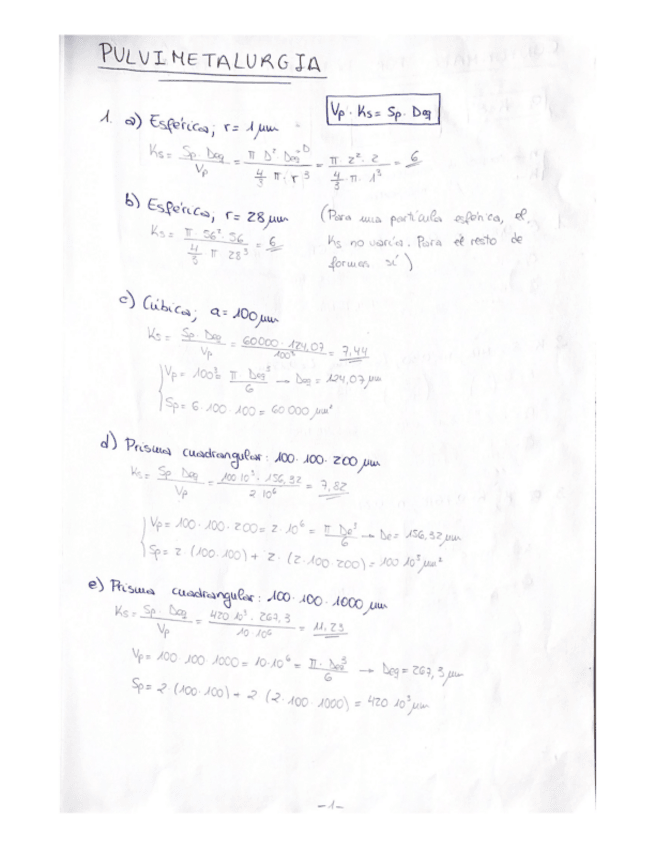 PULVIMETALURGIA
Vp · Ks = Sp · Deq
1. a) Esférica; r = 1 μm
Ks = Sp · Deq / Vp = π D² · Deq / (4/3 · π · r³) = π · 2² · 2 / (4/3 · π · 1³) = 6
b) Esférica, r = 28 μm
Ks = π · 56² · 56 / (4/3 · π · 28³) = 6
(Para una partícula esférica, el
Ks no varía. Para el resto de
formas sí)
c) Cúbica; a = 100 μm
Ks = Sp · Deq / Vp = 60000 · 124,07 / 100³ = 7,44
Vp = 100³ = π Deq³ / 6 → Deq = 124,07 μm
Sp = 6 · 100 · 100 = 60 000 μm²
d) Prisma cuadrangular: 100 · 100 · 200 μm
Ks = Sp Deq / Vp = 100 10³ · 156,32 / 2 10⁶ = 7,82
Vp = 100 · 100 · 200 = 2 · 10⁶ = π De³ / 6 → De = 156,32 μm
Sp = 2 · (100 · 100) + 2 · (2 · 100 · 200) = 100 10³ μm²
e) Prisma cuadrangular: 100 · 100 · 1000 μm
Ks = Sp · Deq / Vp = 420 · 10³ · 267,3 / 10 · 10⁶ = 11,23
Vp = 100 · 100 · 1000 = 10 · 10⁶ = π · Deq³ / 6 → Deq = 267,3 μm
Sp = 2 · (100 · 100) + 2 (2 · 100 · 1000) = 420 10³ μm
-1-